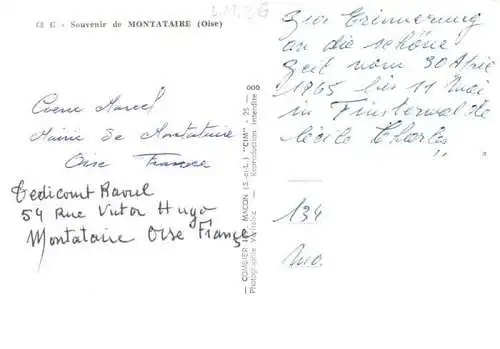 63 C - Souvenir de MONTATAIRE (Oise)
Coene Marcel
Mairie de Montataire
Oise France
Tedicourt Raoul
54 Rue Victor Hugo
Montataire Oise France
— COMBIER IMP. MACON (S.-et-L.) "CIM" - 25 — 000
Photographie Véritable - Reproduction Interdite
Zur Erinnerung
an die schöne
Zeit vom 30 April
1965 bis 11 Mai
in Finsterwalde
Cécile Charles
134